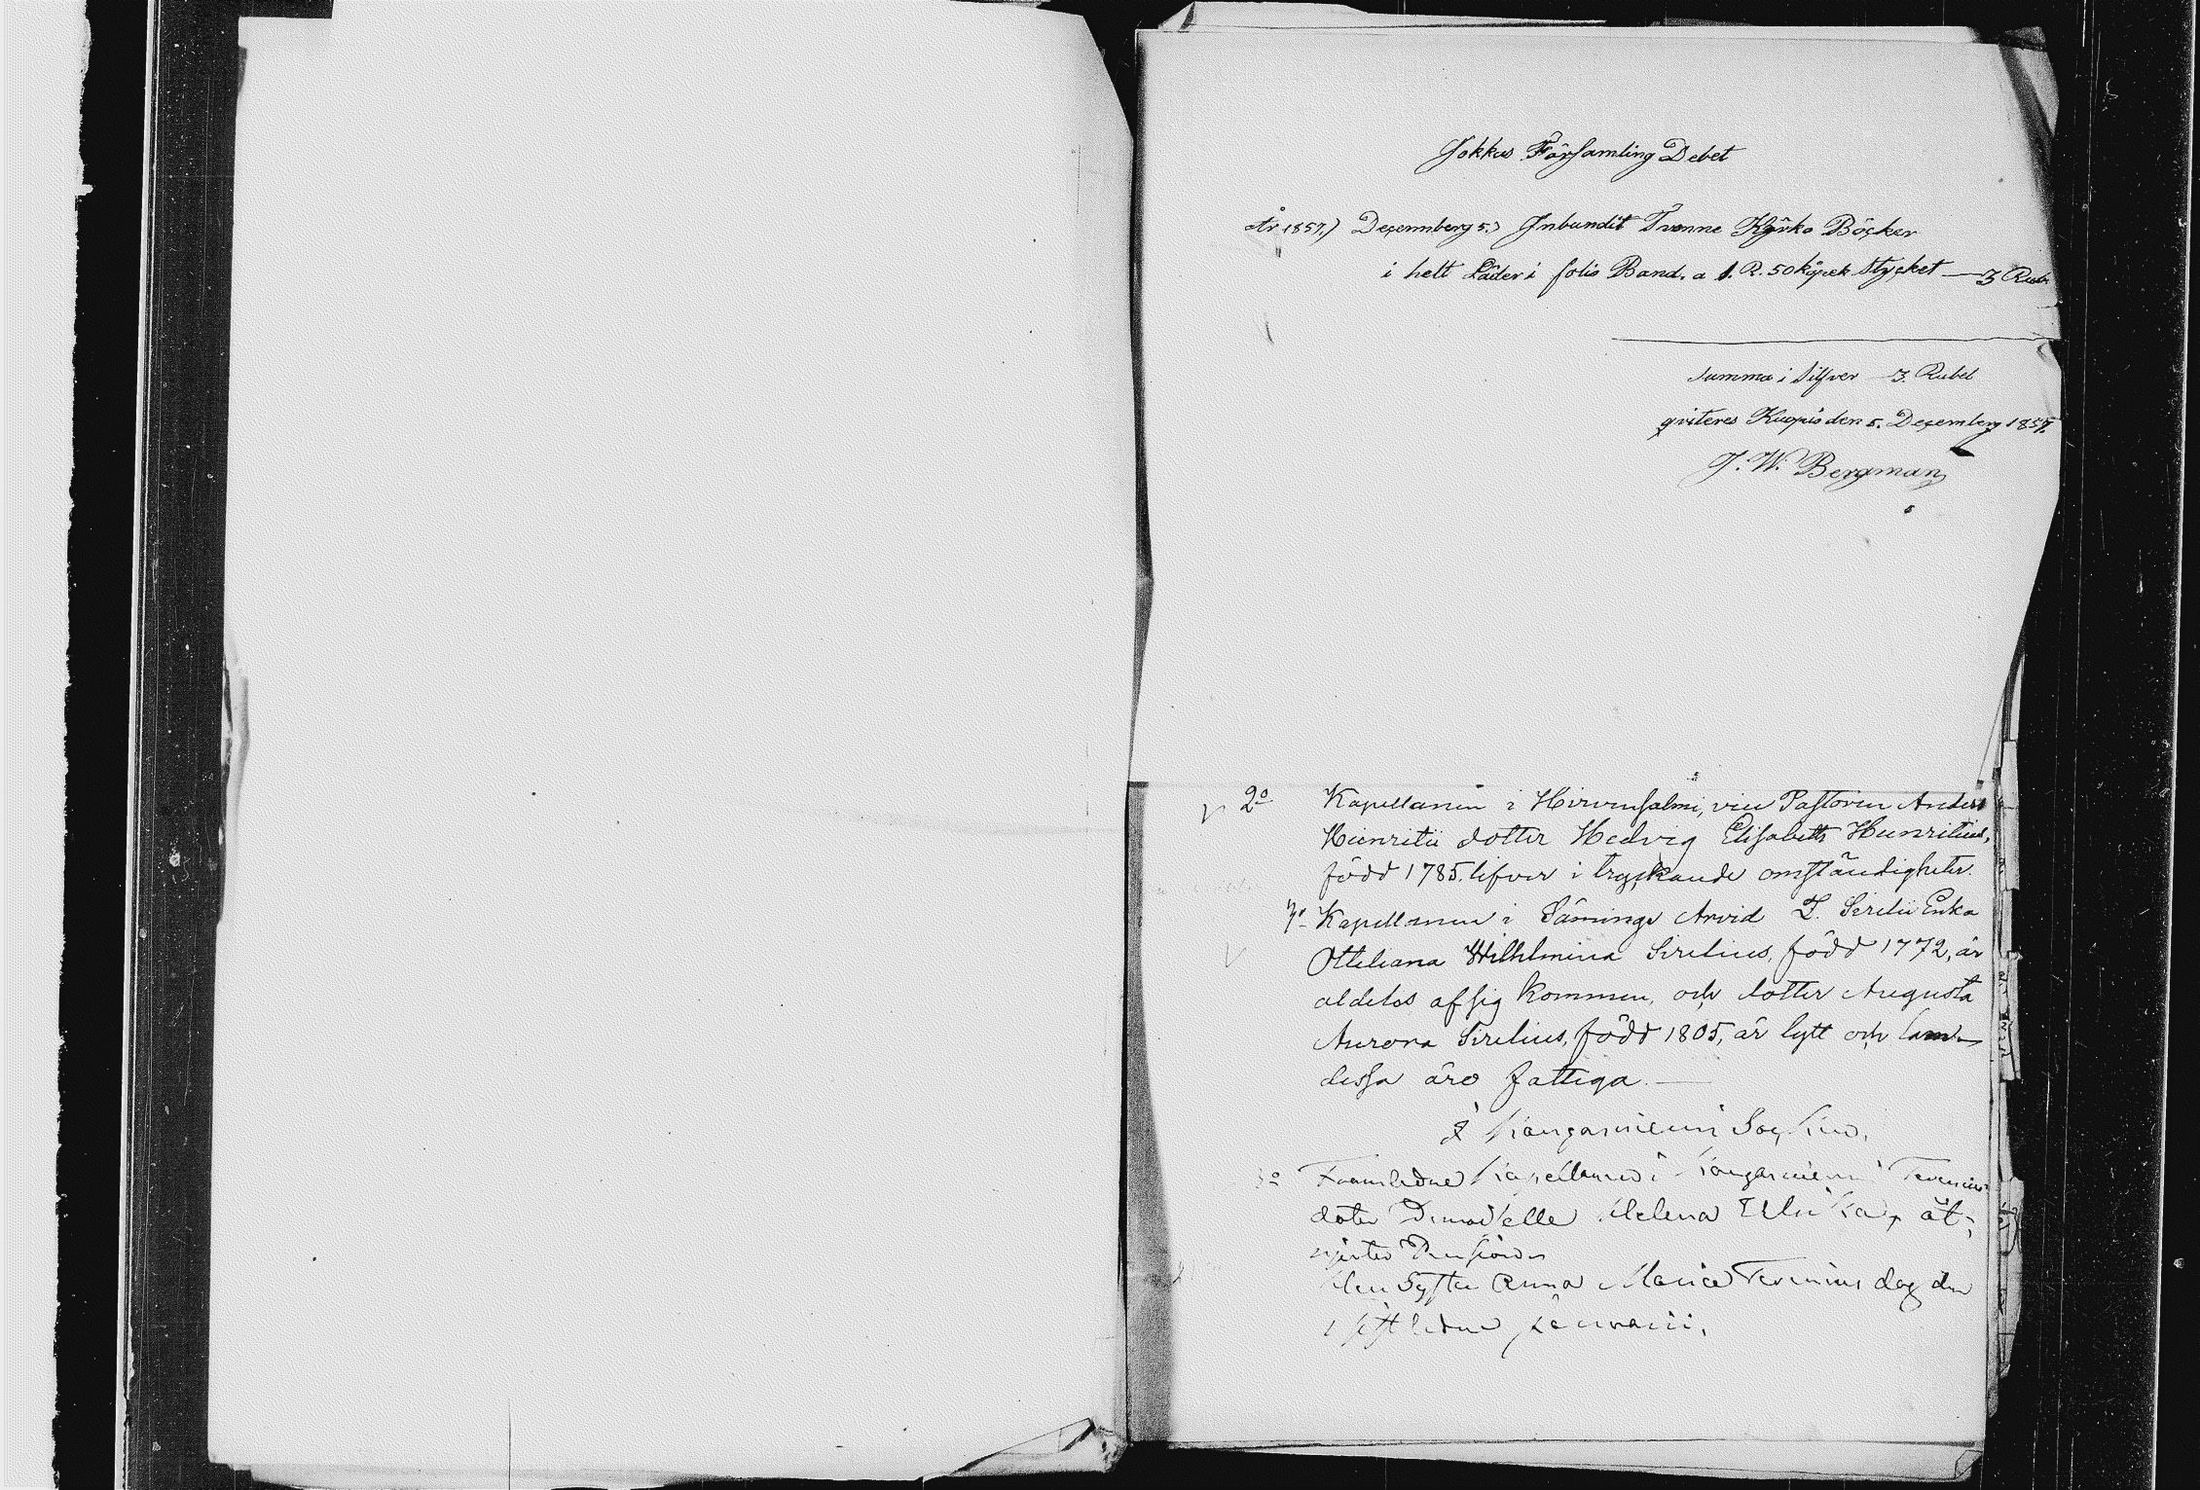 Jokkas Församling Debet
År 1857.) Deçemnberg 5.) Jnbundit Tvenne Kÿrko Böçker
i helt Läder i folio Band. a 1. R. 50 kopek Styçket — 3 Rub
Summa i Silfver — 3. Rubel
qviteres Kuopio den 5. Deçemberg 1857.
J. W. Bergman
2o Kapellanen i Hirvensalmi, vice Pastoren Anders
Heinritii dotter Hedvig Elisabeth Heinritius,
född 1785. lefver i tryckande omständigheter.
Kapellanen i Säminge Arvid Z. Sirelii Enka
Otteliana Wilhelmina Sirelius, född 1772, är
aldeles af sig kommen, och dotter Augusta
Aurora Sirelius, född 1805, är lytt och lam
dessa äro fattiga. —
I Kangasniemi Sockn.
Framledne Kapellanen i Kangasniemi
doter Helena Ulrika, åt-
njuter Pension
Syster Anna Maria dog den